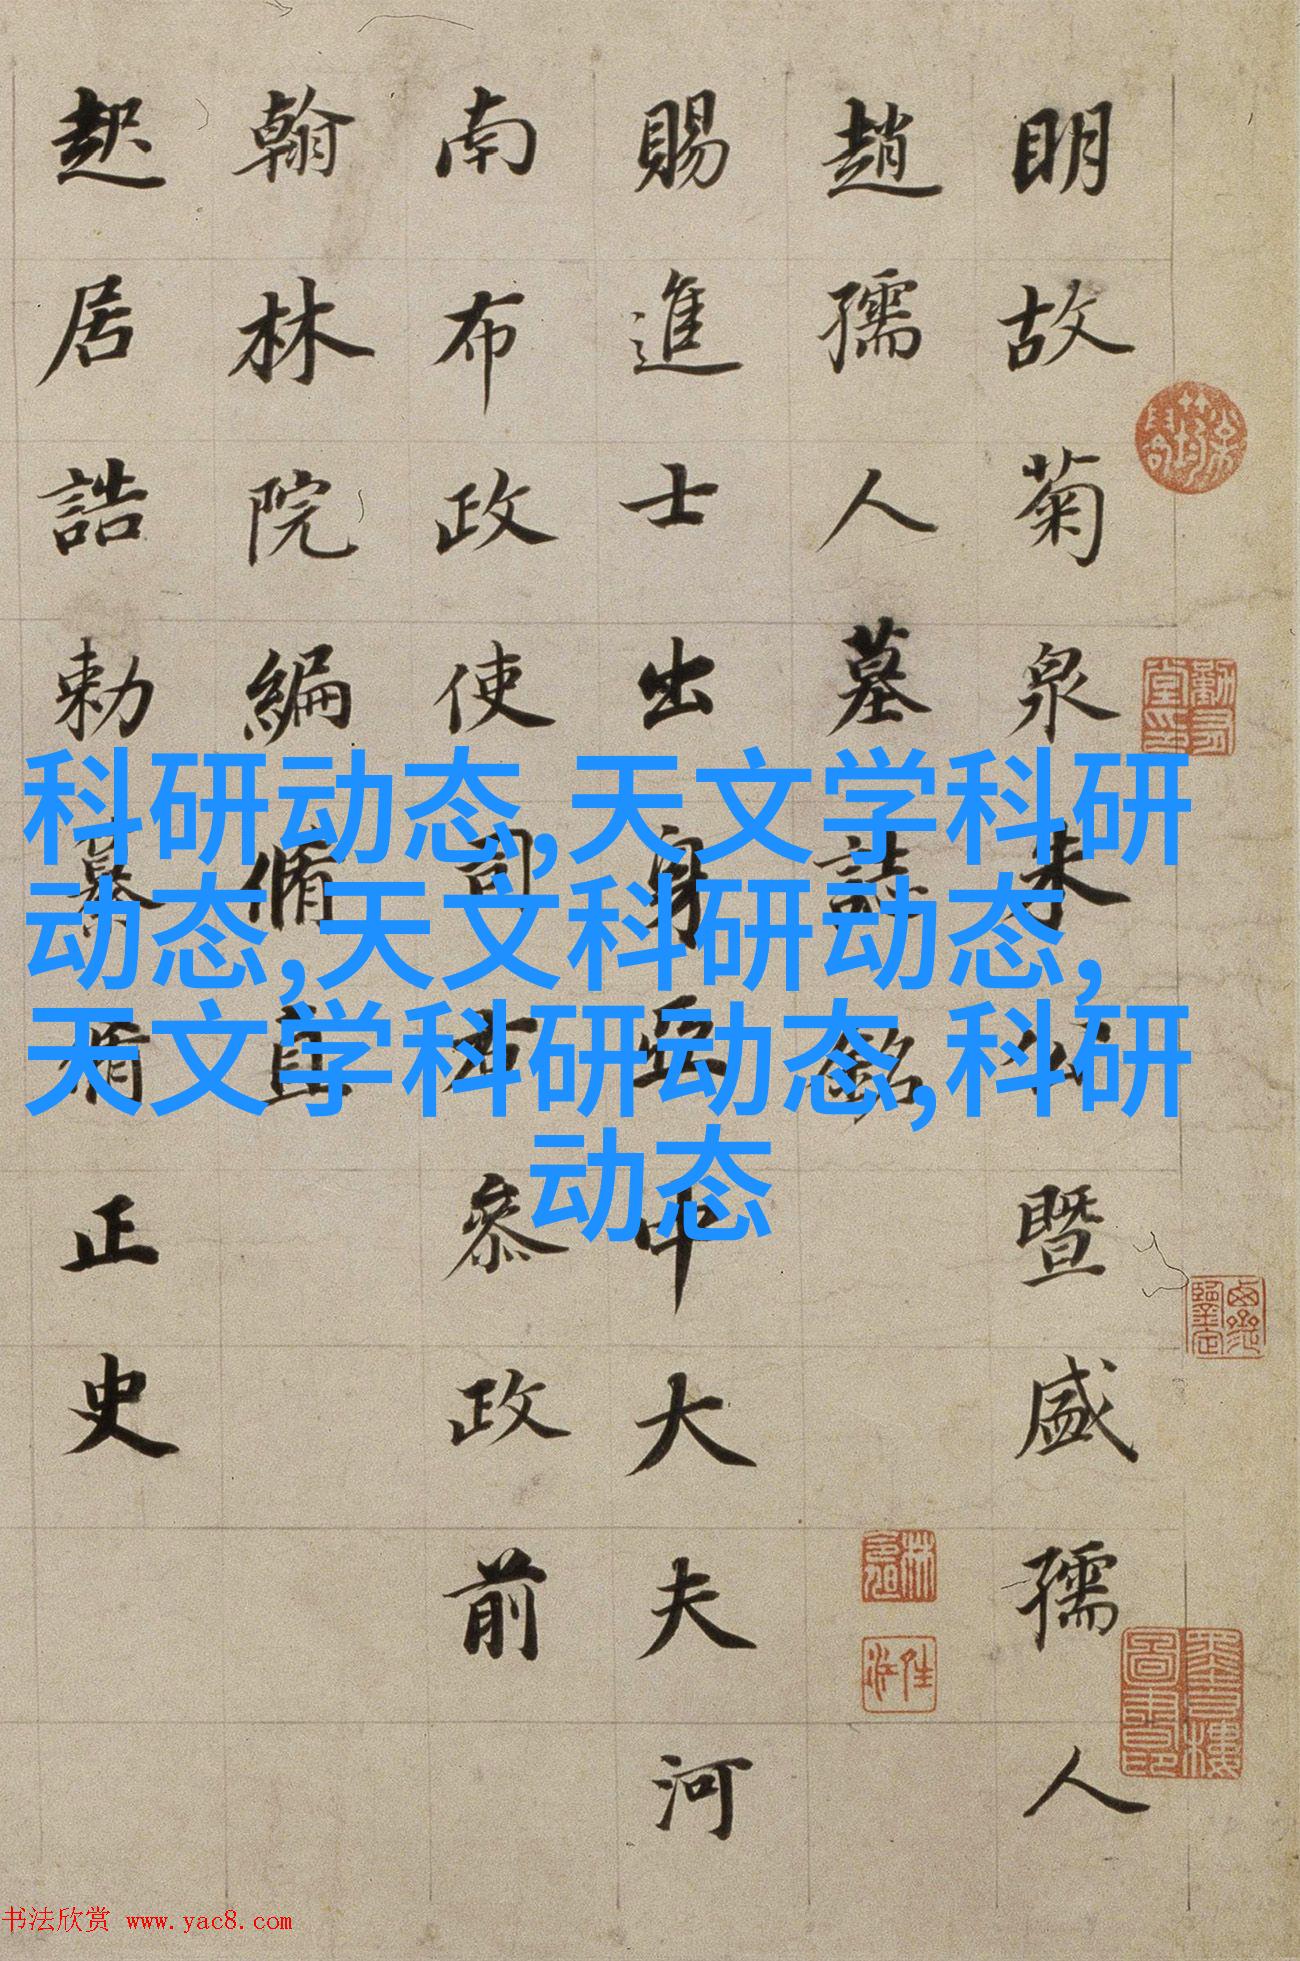 明故菊泉朱公暨盛孺人
趙孺人墓誌銘
賜進士出身亞中大夫河
南布政使司右叅政前
翰林院編脩直
起居誥勅纂脩正史
科研动态,天文学科研
动态,天文科研动态,
天文学科研动态,科研
动态
书法欣赏 www.yac8.com